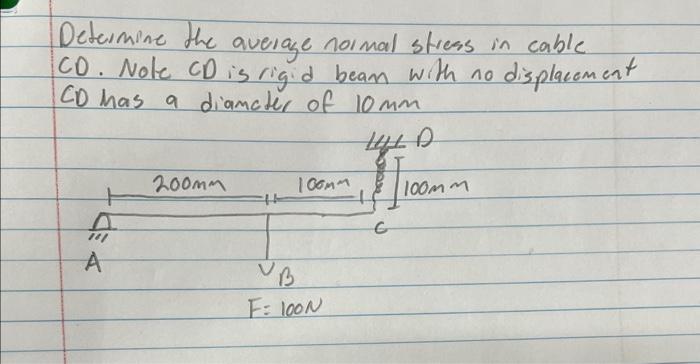 Determine the average normal stress in cable
CD. Note CD is rigid beam with no displacement
CD has a diameter of 10mm
D
200mm
100mm
100mm
C
A
B
F= 100N